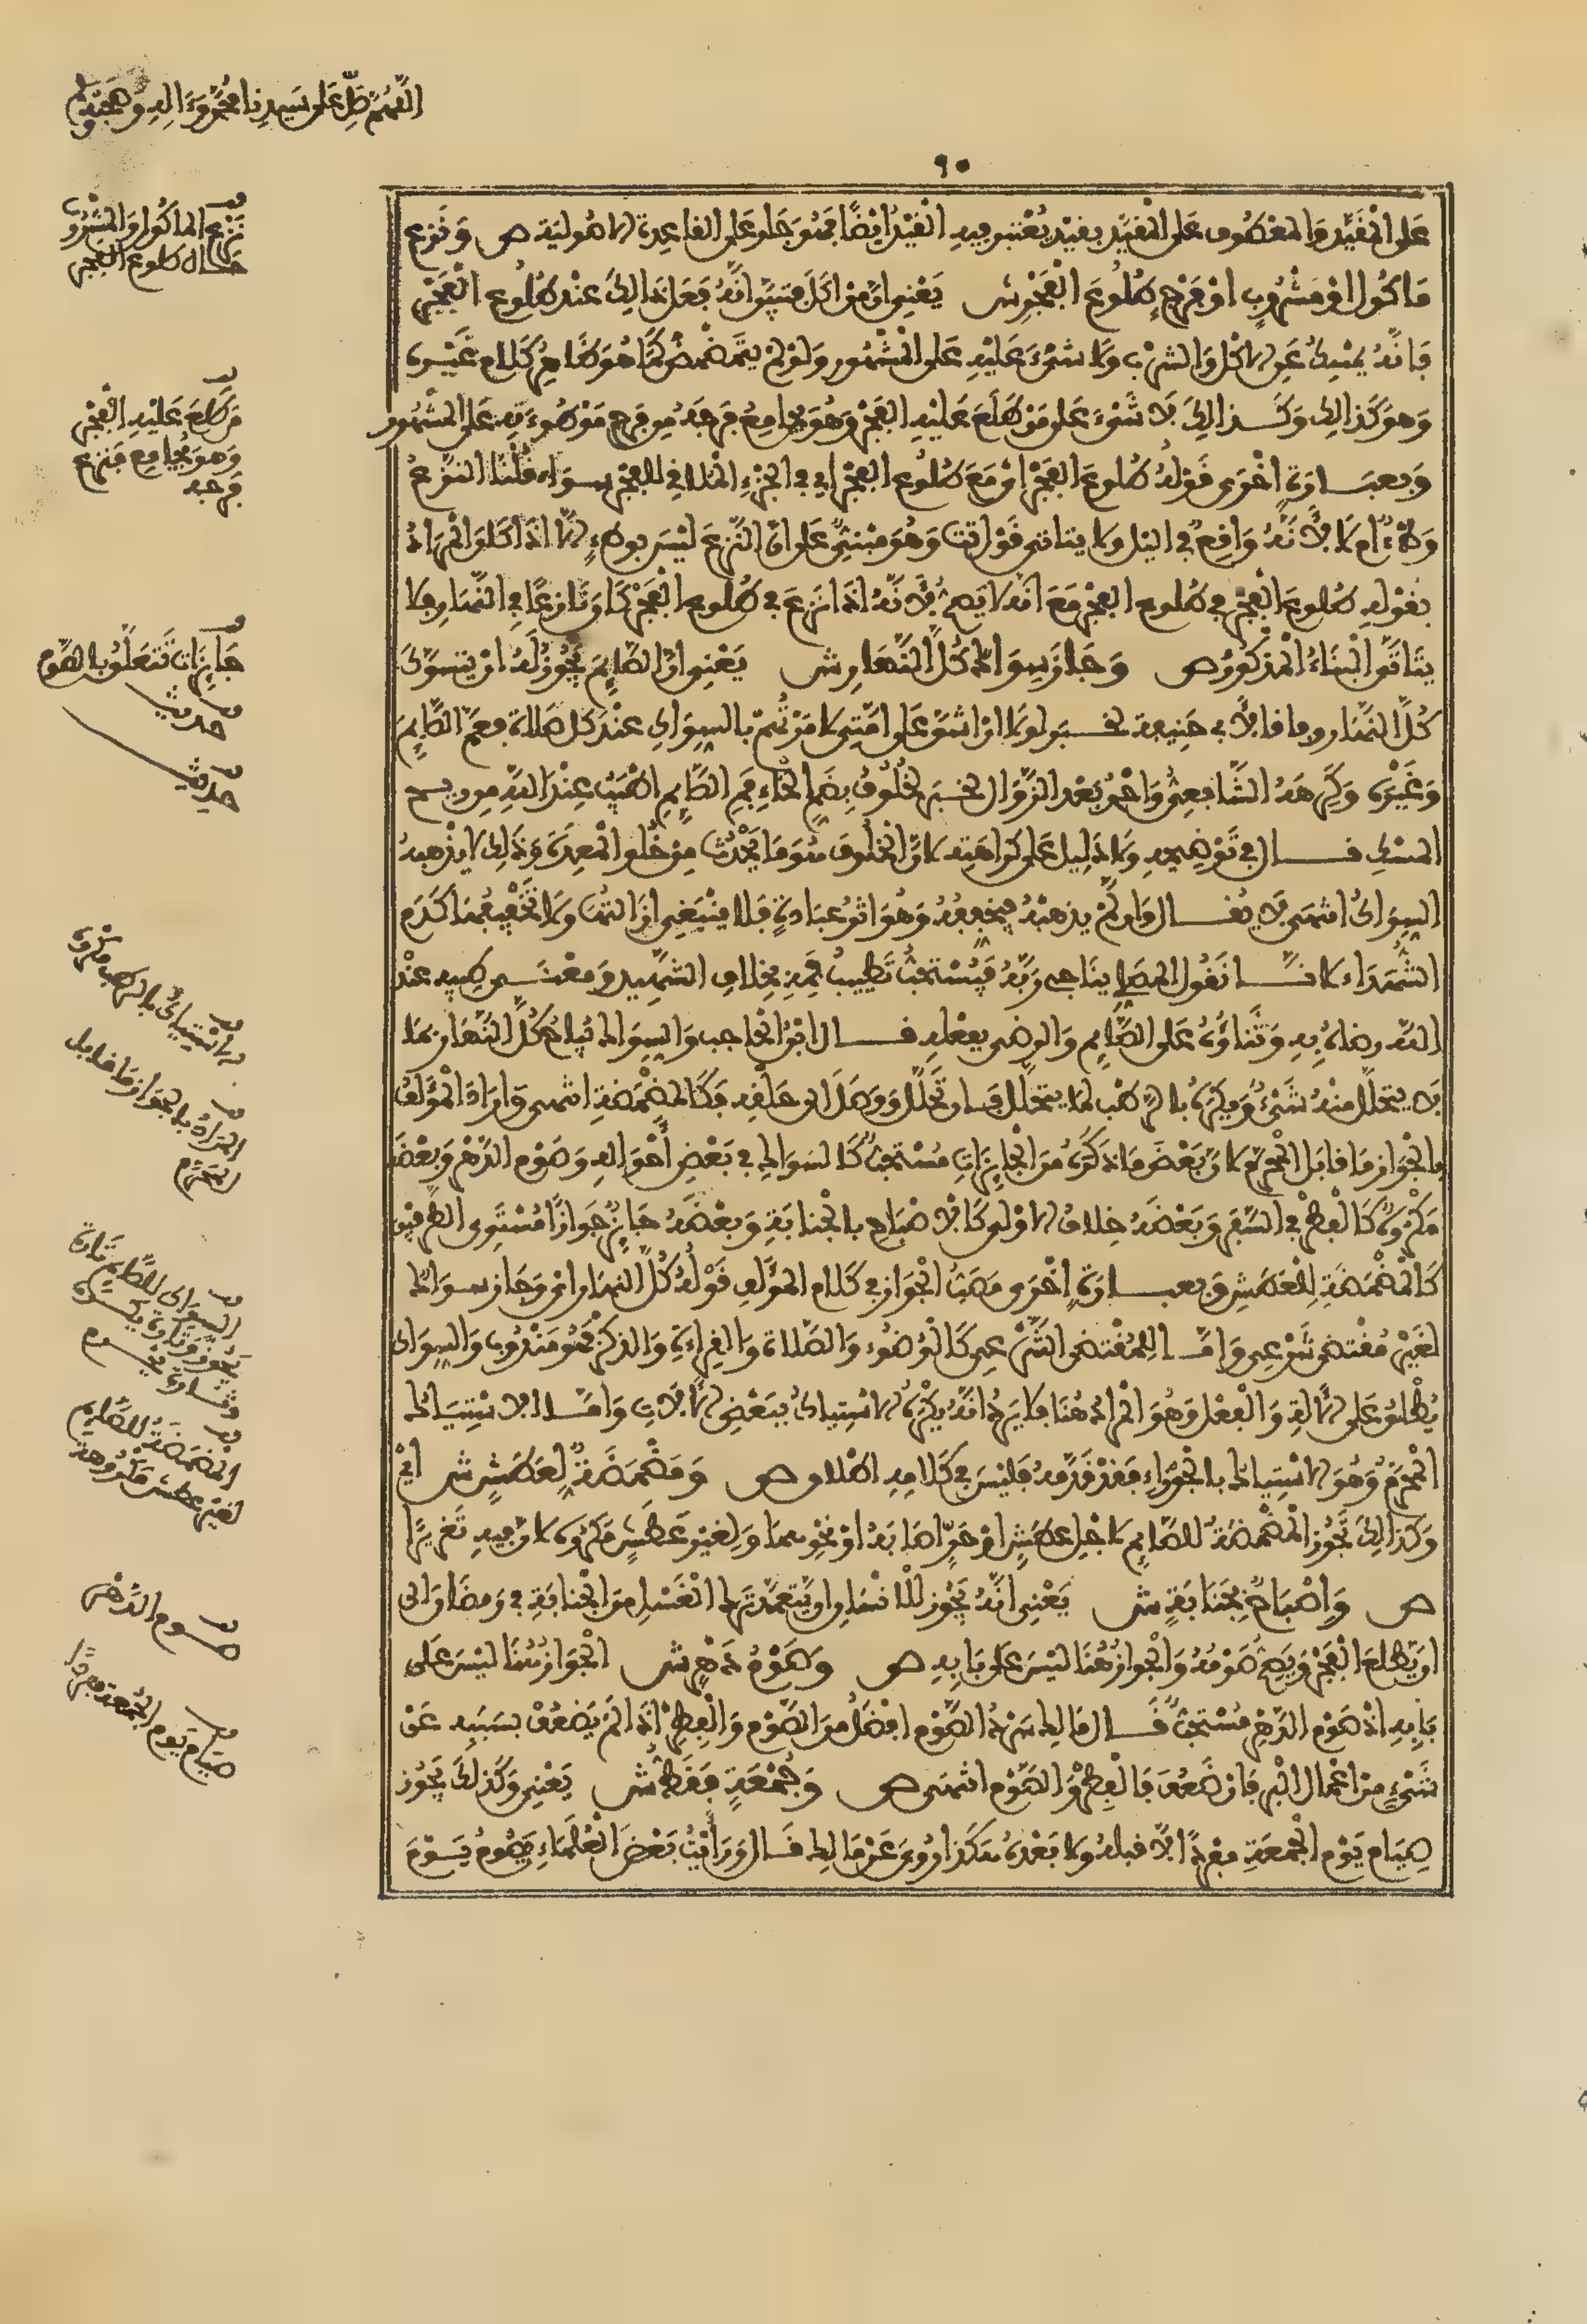 اللهم صل على سيدنا محمد وءاله وصحبه
٩٠
على المقيد والمعطوف على المقيد بقيد يعتبر فيه القيد ايضا فهو جار على القاعدة الاصولية ص ونزع
ماكول او مشروب او فرج طلوع الفجر ش يعني ان من اكل فتبين انه فعل ذالك عند طلوع الفجر
فانه يمسك عن الاكل والشرب ولا شيء عليه على المشهور ولو لم يتمضمض كما هو ظاهر كلام غيره
وهو كذالك وكذالك لا شيء على من طلع عليه الفجر وهو يجامع فرجه من فرج موطوءته على المشهور
وبعبارة اخرى قوله طلوع الفجر او مع طلوع الفجر اي في الجزء الملاقي للفجر سواء قلنا النزع
وطء ام لا لانه واقع في اليل ولا يتاتى وهو مبني على ان النزع ليس بوطء
بقوله طلوع الفجر في طلوع الفجر مع انه لا يصح لانه اذا نزع في طلوع الفجر كان نازعا في النهار فلا
يتاتى البناء المذكور ص وجاز سواك كل النهار ش يعني ان الصايم يجوز له ان يتسوك
كل النهار وفاقا لابي حنيفة لخبر لولا ان اشق على امتي لامرتهم بالسواك عند كل صلاة فعم الصايم
وغيره وكرهه الشافعي واحمد بعد الزوال لخبر لخلوف بضم الخاء فم الصايم اطيب عند الله من ريح
المسك قال في توضيحه ولا دليل على كراهته لان الخلوف هو ما يحدث من خلو المعدة وذلك لا يذهبه
السواك انتهى لا يقال وان لم يذهبه فيخففه وهو اثر عبادة فلا ينبغي ازالتها ولا تخفيفها كدم
الشهداء لانا نقول المصلي يناجي ربه فيستحب تطييب فمه بخلاف الشهيد ومعنى طيبه عند
الله رضاه به وثناؤه على الصايم والرضى بفعله قال ابن الحاجب والسواك مباح كل النهار بما
لا يتحلل منه شيء وكره بالرطب لما يتحلل فان تحلل ووصل الى حلقه فكالمضمضة انتهى واراد المؤلف
بالجواز ما قابل المحرم لان بعض ما ذكره من الجايزات مستحب كالسواك في بعض احواله وصوم الدهر وبعضه
مكروه كالفطر في السفر وبعضه خلاف الاولى كالاصباح بالجنابة وبعضه جايز جوازا مستوي الطرفين
كالمضمضة للعطش وبعبارة اخرى مصب الجواز في كلام المؤلف قوله كل النهار اي وجاز سواك
لغير مقتض شرعي واما للمقتضى الشرعي كالوضوء والصلاة والقراءة والذكر فهو مندوب والسواك
يطلق على الآلة والفعل وهو المراد هنا فلا يرد انه يكره الاستياك ببعض الآلات واما الاستياك
المحرم وهو الاستياك بالجوزاء فقد قدمه فليس في كلامه اطلاق ص ومضمضة لعطش ش اي
وكذالك تجوز المضمضة للصايم لاجل عطش او حر اصابه او نحوهما ولغير عطش مكروه لان فيه تغريرا
ص واصباح بجنابة ش يعني انه يجوز للانسان ان يتعمد ترك الغسل من الجنابة في رمضان الى
ان يطلع الفجر ويصح صومه والجواز هنا ليس على بابه ص وصوم دهر ش الجواز هنا ليس على
بابه اذ صوم الدهر مستحب قال مالك سرد الصوم افضل من الصوم والفطر اذا لم يضعف بسببه عن
شيء من اعمال البر فان ضعف فالفطر والصوم انتهى ص وجمعة فقط ش يعني وكذلك يجوز
صيام يوم الجمعة مفردا لا قبله ولا بعده هكذا روي عن مالك قال ورايت بعض العلماء يصوم يوم
قف
نزع الماكول والمشروب
حال طلوع الفجر
قف
من طلع عليه الفجر
وهو يجامع فنزع
فرجه
قف
جايزات تتعلق بالصوم
قف
حديث
قف
حديث
قف
الاستياك بالرطب مكروه
قف
المراد بالجواز ما قابل
المحرم
قف
السواك للصايم تارة
يجوز وتارة يكره
وتارة يحرم
قف
المضمضة للصايم
لغير عطش مكروهة
قف
صوم الدهر
قف
صيام يوم الجمعة مفردا